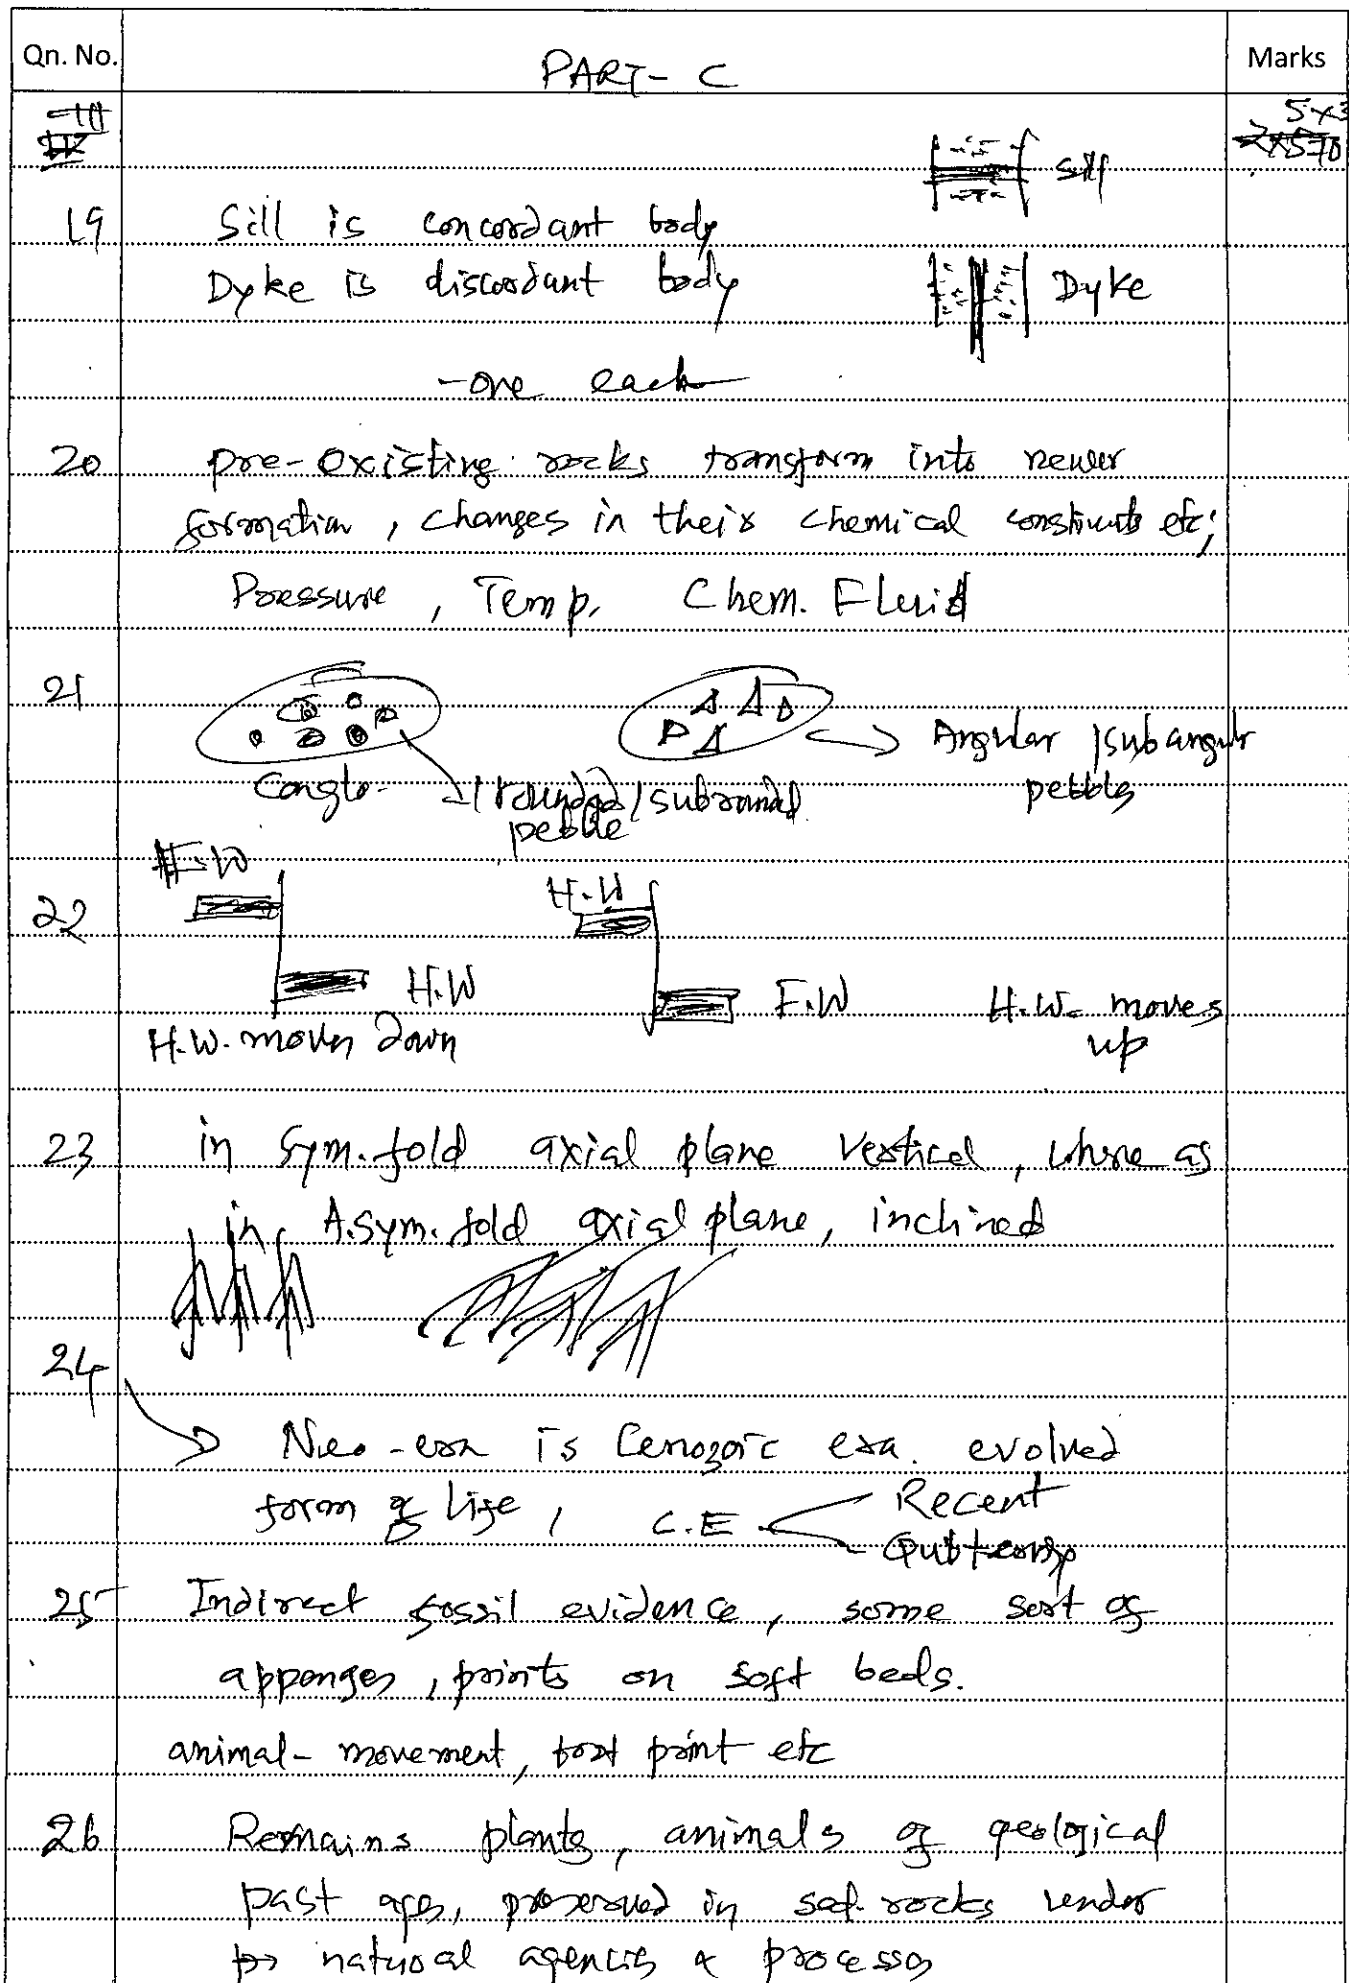 Qn. No.
PART- C
Marks
III
5x3
Sill
19 Sill is concordant body
Dyke is discordant body
Dyke
-one each
20 pre-existing rocks transform into newer
formation, changes in their chemical etc;
Pressure, Temp, Chem. Fluid
21
Conglo- rounded/subrounded pebble
Angular/subangular pebbles
F.W
H.W
22
H.W
F.W
H.W. moves down
H.W- moves up
23 in Sym. fold axial plane vertical, where as
in A.Sym. fold axial plane, inclined
24
Neo-era is Cenozoic era. evolved
form of life, C.E Recent
25 Indirect fossil evidence, some sort of
prints on soft beds.
animal- movement, foot print etc
26 Remains plants, animals of geological
past ages, preserved in sed. rocks under
natural agencies & process